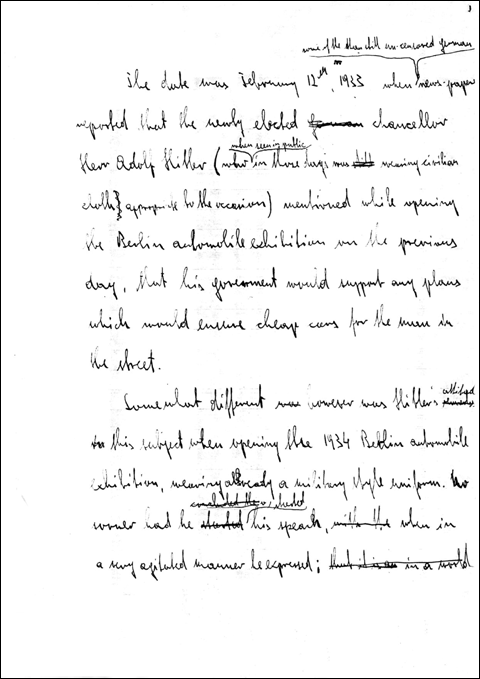 1
some of the then still un-censored german
The date was February 12th, 1933 when news-paper
reported that the newly elected german chancellor
when seen in public
Herr Adolf Hitler (who in those days was still wearing civilian
cloth appropriate to the occasion) mentioned while opening
the Berlin automobile exhibition on the previous
day, that his goverment would support any plans
which would ensure cheap cars for the man in
the street.
attitude
Somewhat different was however was Hitler's
to this subject when opening the 1934 Berlin automobile
exhibition, wearing already a military style uniform. No
started
sooner had he started his speach, with the when in
a very agitated manner he expressed; that it is in a world